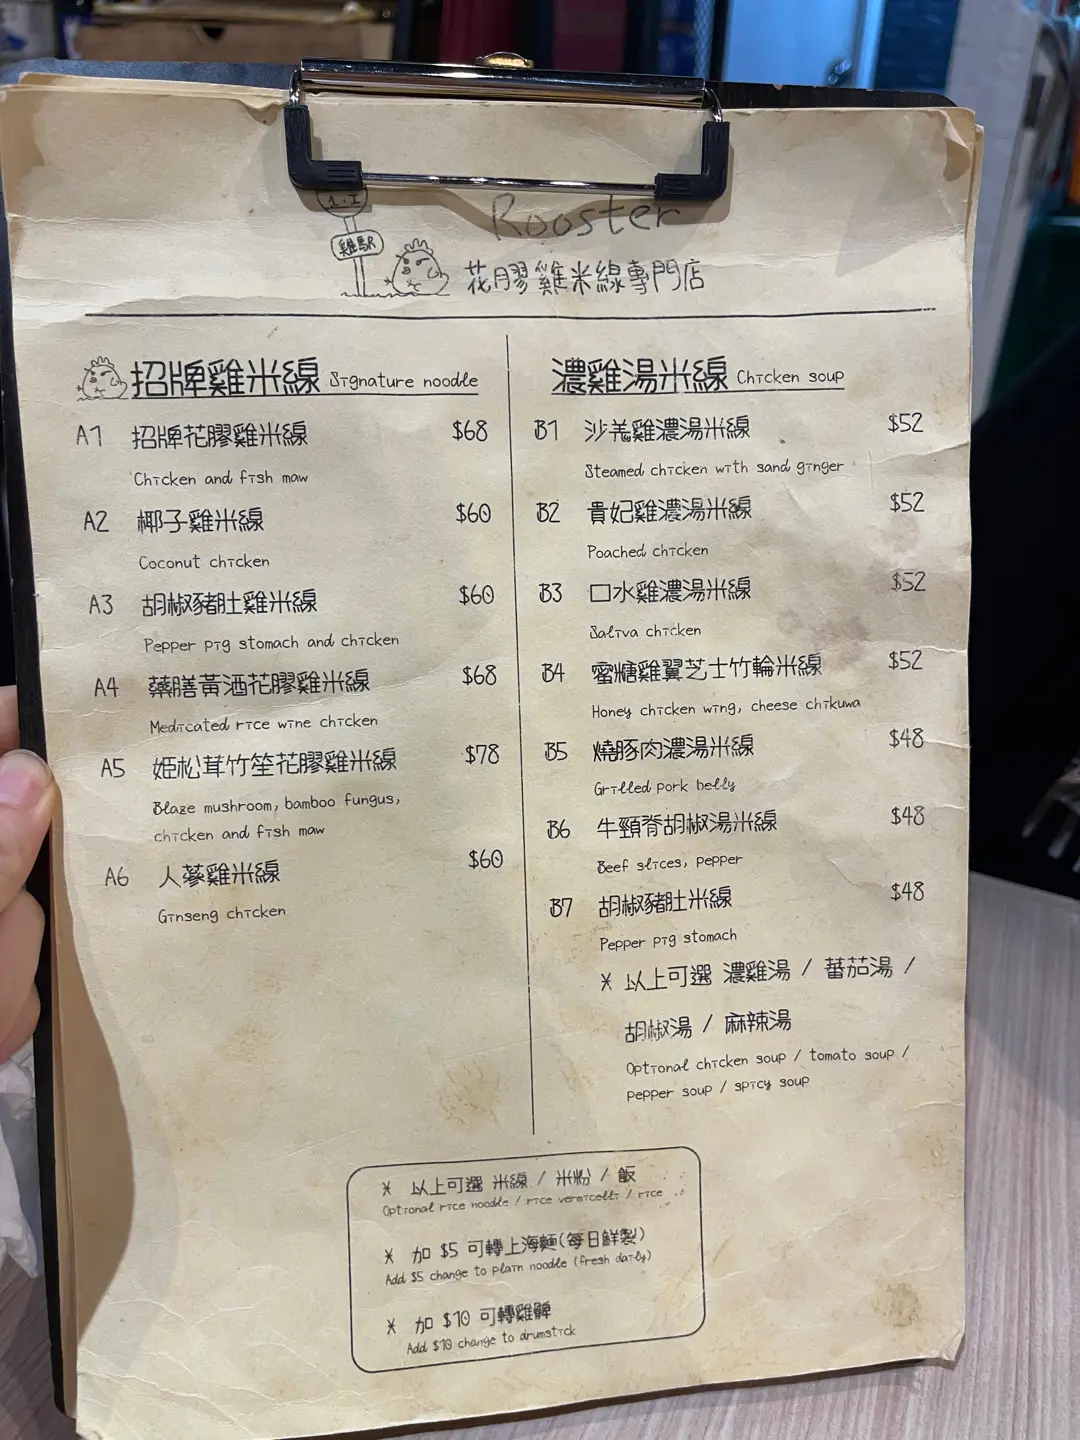 1.I
雞駅
Rooster
花膠雞米線專門店
招牌雞米線 Signature noodle
A1 招牌花膠雞米線 $68
Chicken and fish maw
A2 椰子雞米線 $60
Coconut chicken
A3 胡椒豬肚雞米線 $60
Pepper pig stomach and chicken
A4 藥膳黃酒花膠雞米線 $68
Medicated rice wine chicken
A5 姬松茸竹笙花膠雞米線 $78
Blaze mushroom, bamboo fungus,
chicken and fish maw
A6 人蔘雞米線 $60
Ginseng chicken
濃雞湯米線 Chicken soup
B1 沙羗雞濃湯米線 $52
Steamed chicken with sand ginger
B2 貴妃雞濃湯米線 $52
Poached chicken
B3 口水雞濃湯米線 $52
Saliva chicken
B4 蜜糖雞翼芝士竹輪米線 $52
Honey chicken wing, cheese chikuwa
B5 燒豚肉濃湯米線 $48
Grilled pork belly
B6 牛頸脊胡椒湯米線 $48
Beef slices, pepper
B7 胡椒豬肚米線 $48
Pepper pig stomach
* 以上可選 濃雞湯 / 蕃茄湯 /
胡椒湯 / 麻辣湯
Optional chicken soup / tomato soup /
pepper soup / spicy soup
* 以上可選 米線 / 米粉 / 飯
Optional rice noodle / rice vermicelli / rice
* 加 $5 可轉上海麵(每日鮮製)
Add $5 change to plain noodle (fresh daily)
* 加 $10 可轉雞髀
Add $10 change to drumstick